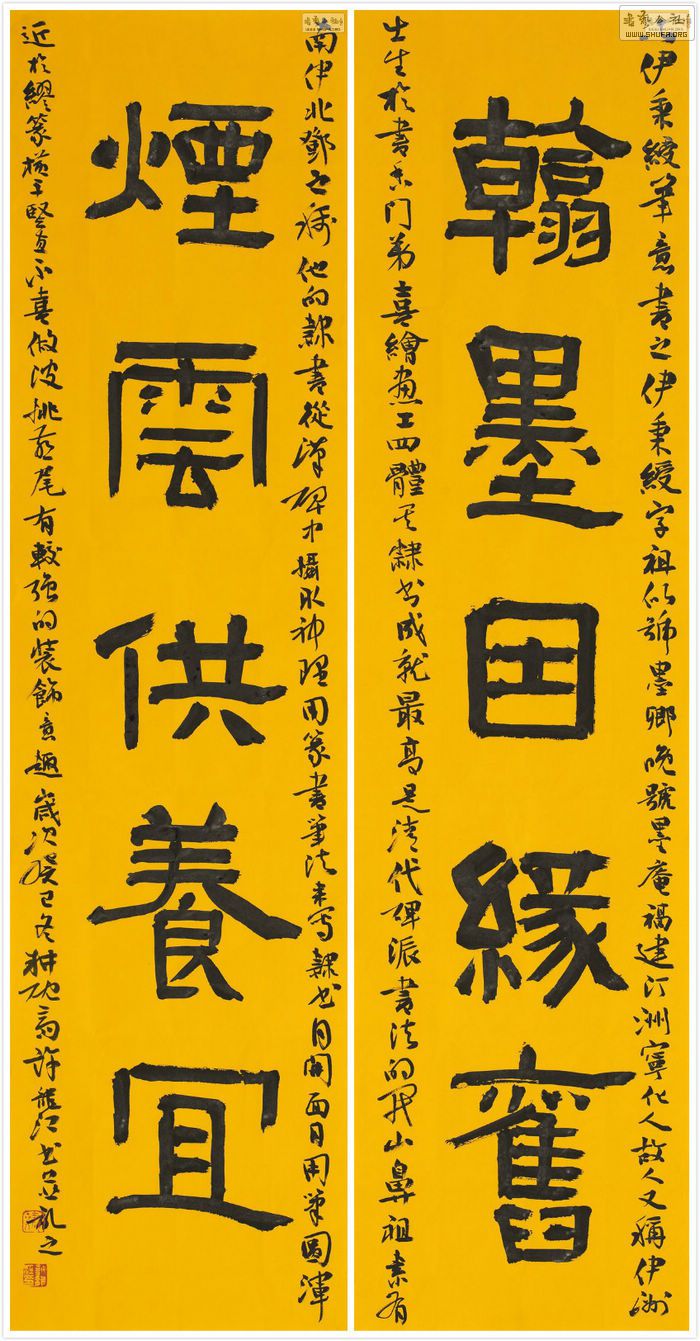 伊秉綬筆意書之伊秉綬字祖似號墨卿晚號墨庵福建汀洲寧化人故人又稱伊洲
翰墨因緣舊
出生於書香門弟喜繪畫工四體其隸书成就最高是清代碑派書法的开山鼻祖素有
南伊北鄧之稱他的隸書從漢碑中攝取神理用篆書筆法來寫隸书自開面目用筆圓渾
煙雲供養宜
近於繆篆橫平竪直不喜做波挑燕尾有較強的裝飾意趣歲次癸巳冬耕硯斋許书並記之
書藝公社
WWW.SHUFA.ORG